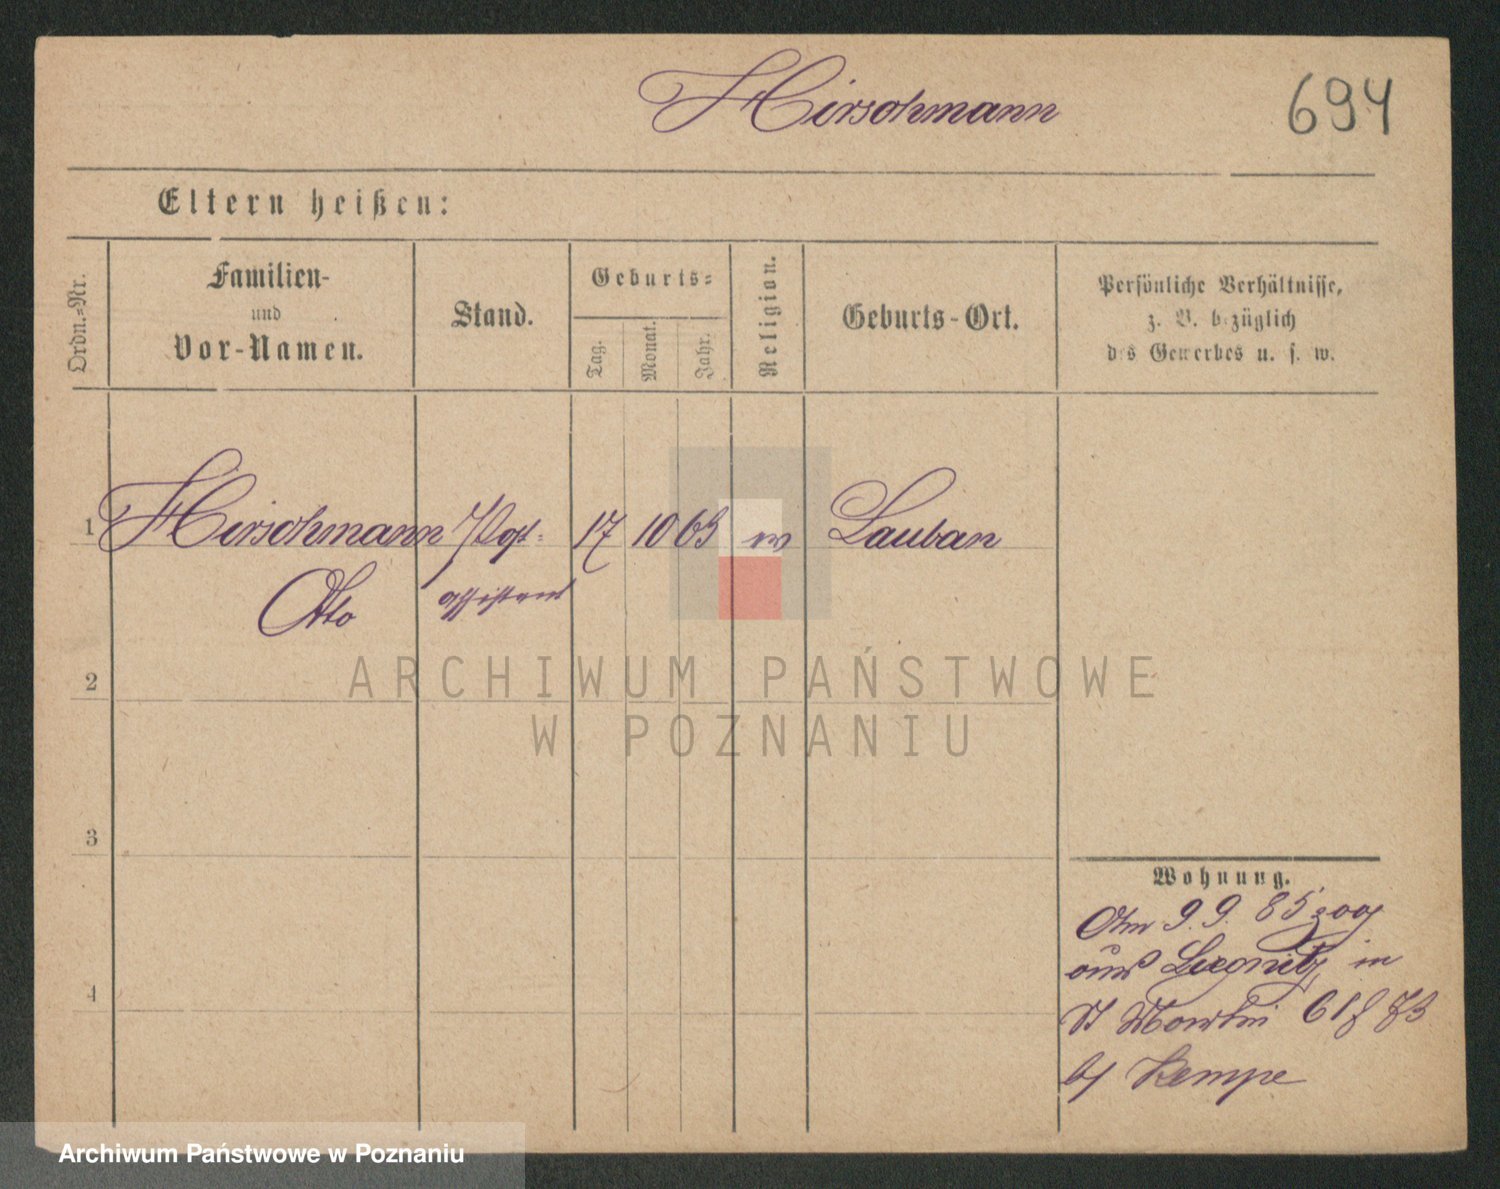 Hirschmann
694
Eltern heißen:
Ordn.-Nr.
Familien-
und
Vor-Namen.
Stand.
Geburts-
Tag.
Monat.
Jahr.
Religion.
Geburts-Ort.
Persönliche Verhältnisse,
z. B. bezüglich
des Gewerbes u. s. w.
1 Hirschmann Post- 17 10 63 ev Lauban
Otto assistent
2
3
4
Wohnung.
Am 9. 9. 85 zog
aus Liegnitz in
St Martin 61
b/ Kempe
ARCHIWUM PAŃSTWOWE
W POZNANIU
Archiwum Państwowe w Poznaniu